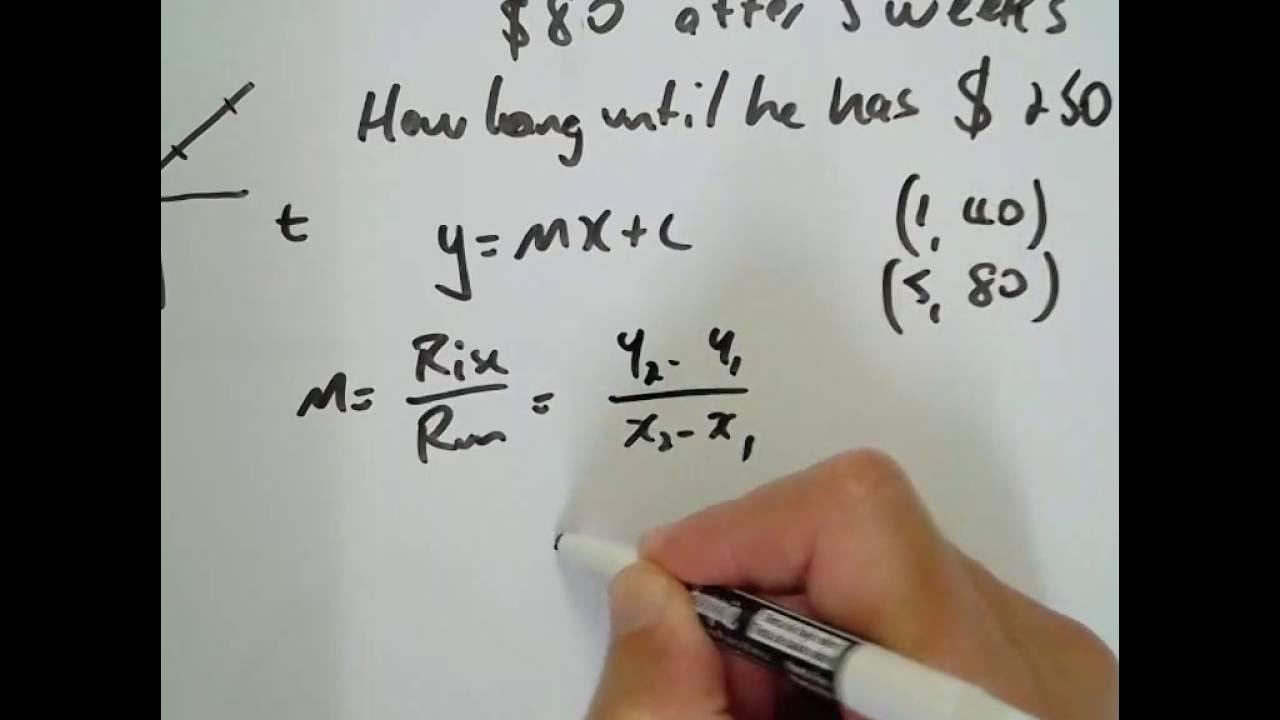 $80 after 5 weeks
How long until he has $250
t
y=mx+c
(1, 40)
(5, 80)
M= Rise/Run = y₂-y₁/x₂-x₁